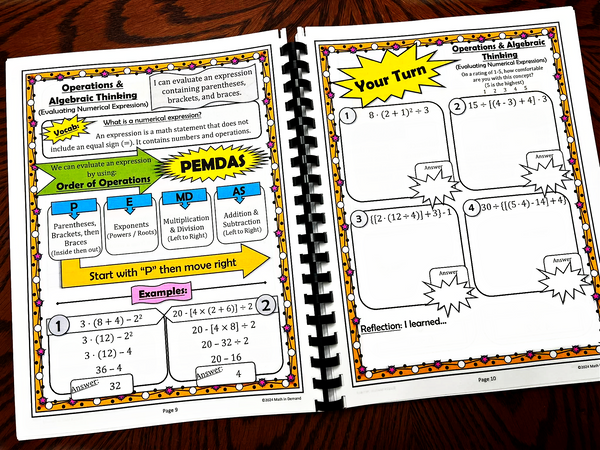 Operations &
Algebraic Thinking
(Evaluating Numerical Expressions)
I can evaluate an expression
containing parentheses,
brackets, and braces.
Vocab:
What is a numerical expression?
An expression is a math statement that does not
include an equal sign (=). It contains numbers and operations.
We can evaluate an expression
by using:
Order of Operations
PEMDAS
P
Parentheses,
Brackets, then
Braces
(Inside then out)
E
Exponents
(Powers / Roots)
MD
Multiplication
& Division
(Left to Right)
AS
Addition &
Subtraction
(Left to Right)
Start with "P" then move right
Examples:
1
3 · (8 + 4) – 2²
3 · (12) – 2²
3 · (12) – 4
36 – 4
Answer:
32
2
20 - [4 × (2 + 6)] ÷ 2
20 - [4 × 8] ÷ 2
20 – 32 ÷ 2
20 – 16
Answer:
4
Page 9
©2024 Math in Demand
Your Turn
Operations & Algebraic
Thinking
(Evaluating Numerical Expressions)
On a rating of 1-5, how comfortable
are you with this concept?
(5 is the highest)
1 2 3 4 5
1
8 · (2 + 1)² ÷ 3
Answer
2
15 ÷ [(4 · 3) + 4] · 3
Answer
3
{[2 · (12 ÷ 4)] + 3} · 1
Answer
4
30 ÷ {[(5 · 4) - 14] + 4}
Answer
Reflection: I learned...
Page 10
©2024 Math in Demand